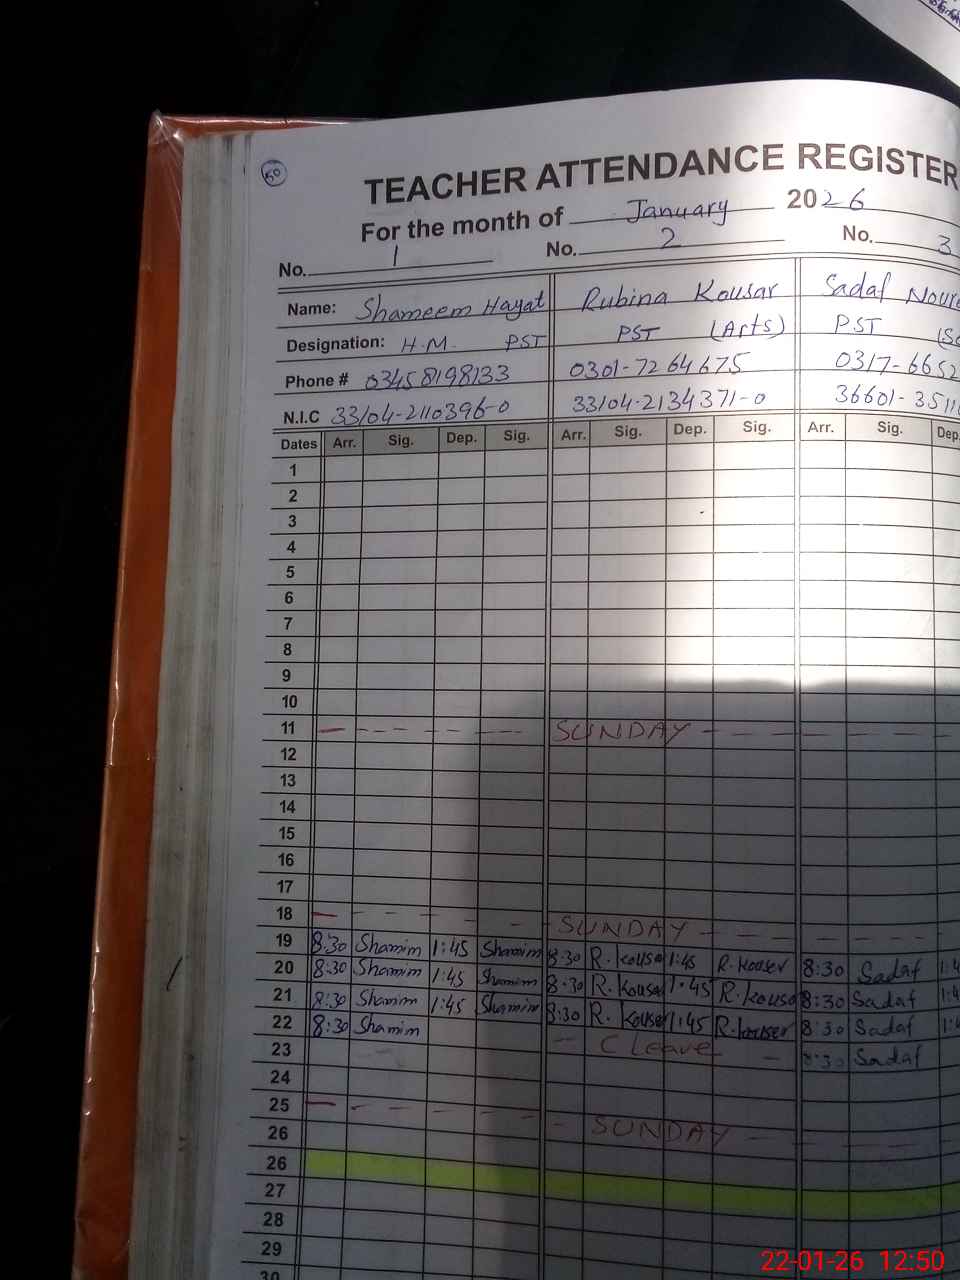 50
TEACHER ATTENDANCE REGISTER
For the month of January 2026
No. 1 No. 2 No. 3
Name: Shameem Hayat Rubina Kousar Sadaf
Designation: H.M. PST PST (Arts) PST
Phone # 03458198133 0301-7264675 0317-6652
N.I.C 33104-2110396-0 33104-2134371-0 36601-3511
Dates Arr. Sig. Dep. Sig. Arr. Sig. Dep. Sig. Arr. Sig. Dep.
1
2
3
4
5
6
7
8
9
10
11 SUNDAY
12
13
14
15
16
17
18 SUNDAY
19 8:30 Shamim 1:45 Shamim 8:30 R. Kouser 1:45 R. Kouser 8:30 Sadaf
20 8:30 Shamim 1:45 Shamim 8:30 R. Kouser 1:45 R. Kouser 8:30 Sadaf
21 8:30 Shamim 1:45 Shamim 8:30 R. Kouser 1:45 R. Kouser 8:30 Sadaf
22 8:30 Shamim C Leave 8:30 Sadaf
23
24
25 SUNDAY
26
26
27
28
29
30
22-01-26 12:50